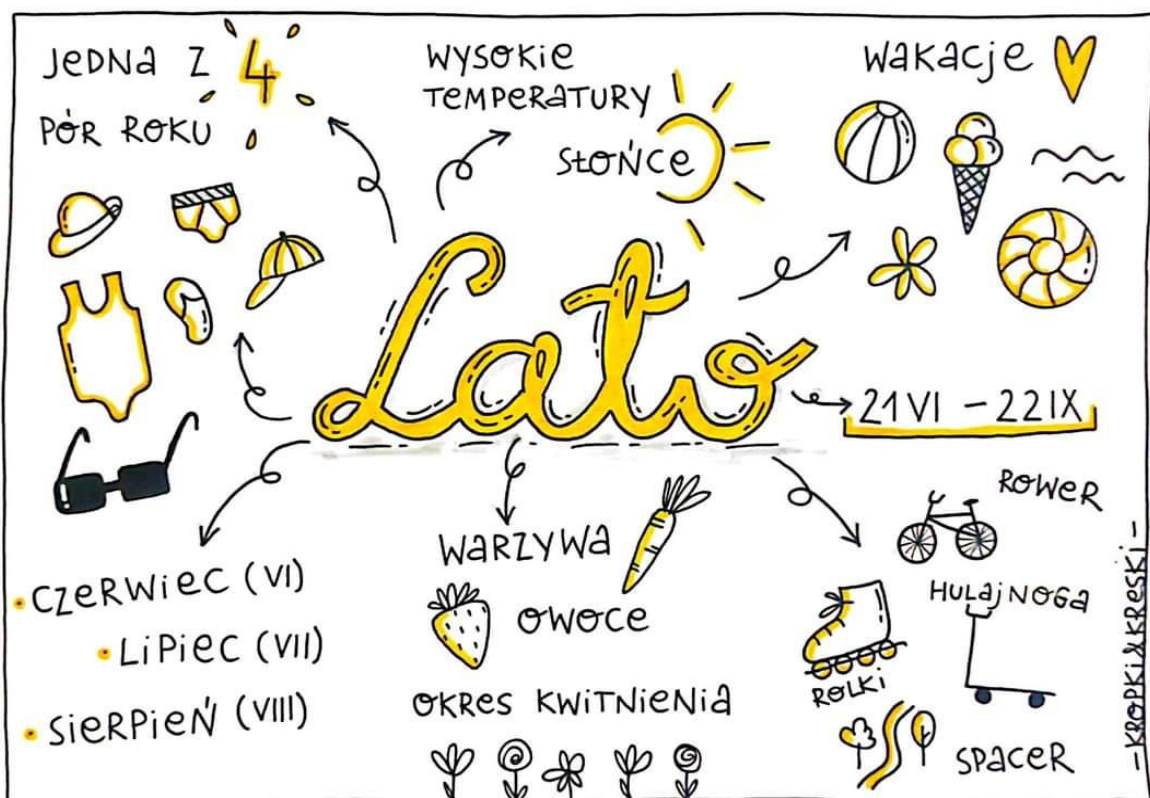 Jedna z 4
pór roku
wysokie
temperatury
słońce
wakacje
Lato
21 VI - 22 IX
czerwiec (VI)
lipiec (VII)
sierpień (VIII)
warzywa
owoce
okres kwitnienia
rower
hulajnoga
rolki
spacer
-KROPKI&KRESKI-